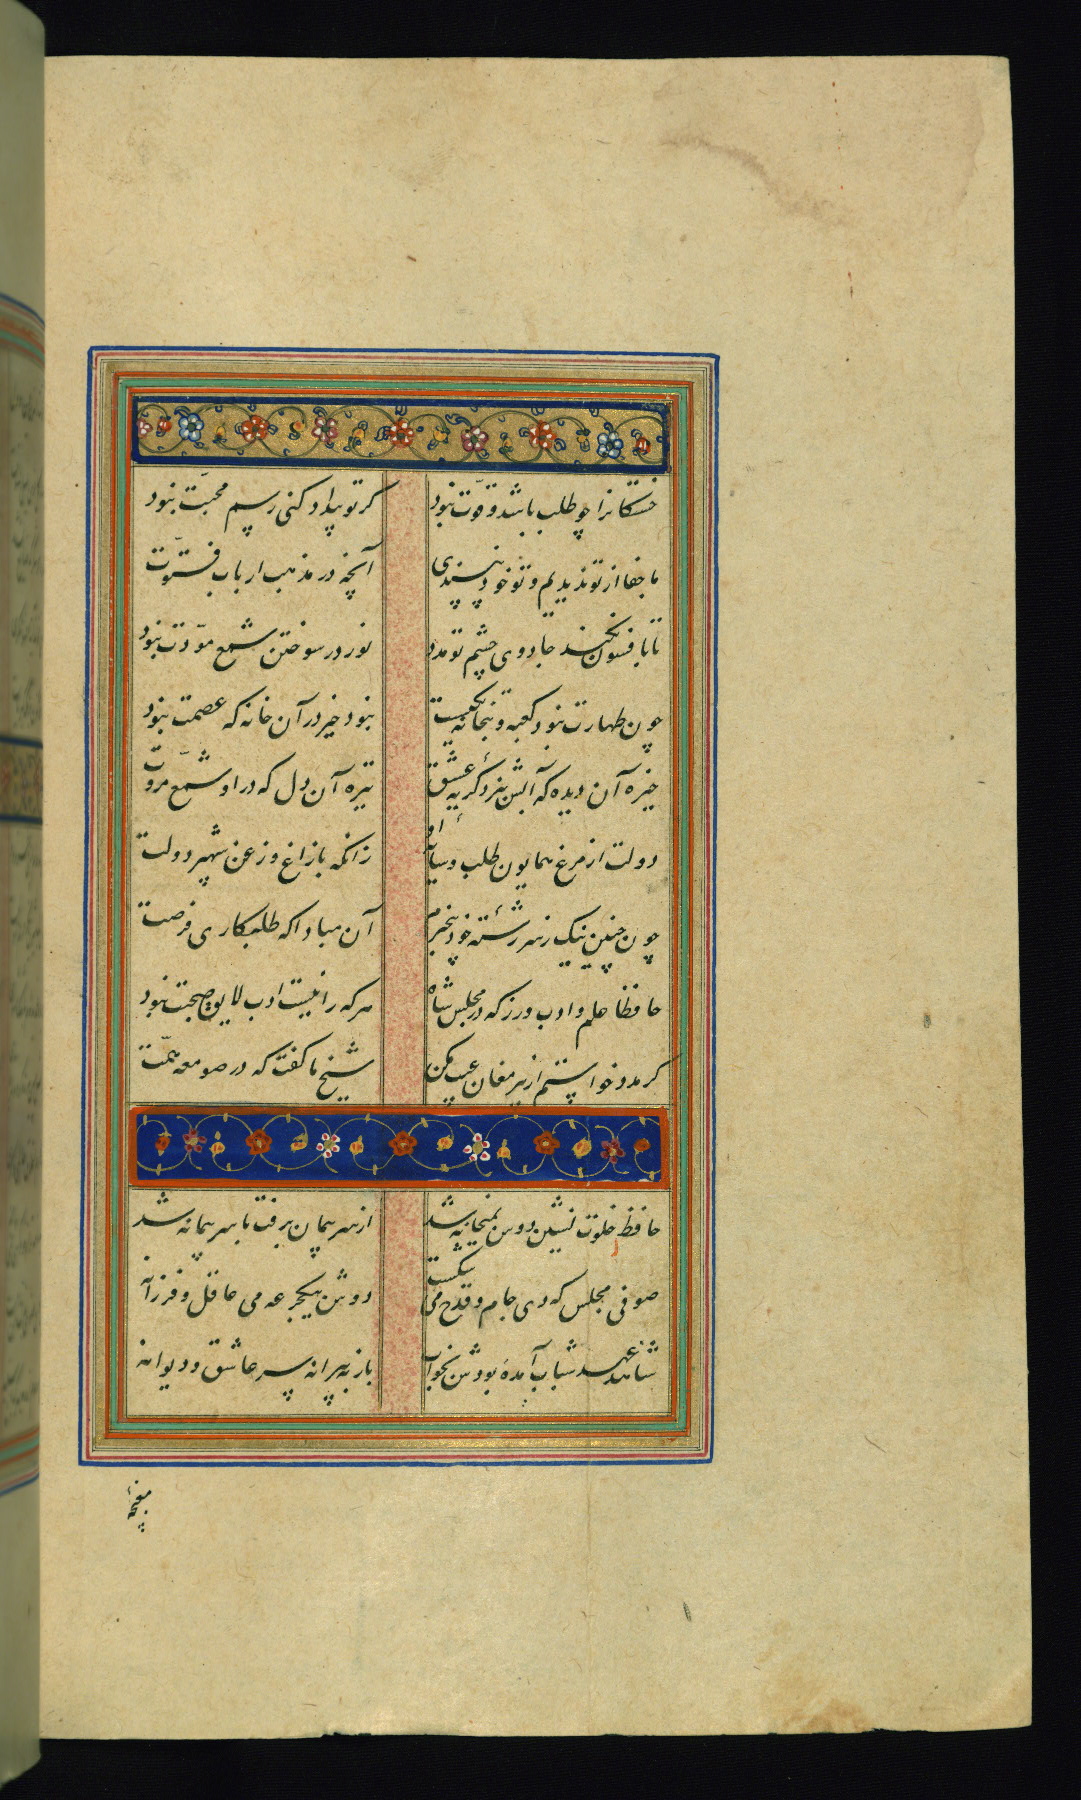 خستگانرا چو طلب باشد و قوّت نبود گر تو بیداد کنی رسم محبّت نبود
ما جفا از تو ندیدیم و تو خود نپسندی آنچه در مذهب ارباب فتوّت
تا بافسون نکند جادوی چشم تو مدد نور در سوختن شمع مودّت نبود
چون طهارت نبود کعبه و بتخانه یکیست نبود خیر در آن خانه که عصمت نبود
خیره آن دیده که آبش نبرد گریهٔ عشق تیره آن دل که در او شمع مروّت
دولت از مرغ همایون طلب و سایهٔ او زانکه با زاغ و زغن شهپر دولت
چون چنین نیک ز سررشتهٔ خود بیخبرم آن مبادا که طلبکاری فرصت
حافظا علم و ادب ورز که در مجلس شاه هر که را نیست ادب لایق صحبت نبود
گر مدد خواستم از پیر مغان عیب مکن شیخ ما گفت که در صومعه همّت
حافظ خلوت نشین دوش بمیخانه شد از سر پیمان برفت با سر پیمانه شد
صوفی مجلس که دی جام و قدح می شکست دوش بیکجرعه می عاقل و فرزانه
شاهد عهد شباب آمده بودش بخواب باز به پیرانه سر عاشق و دیوانه
مغبچهٔ